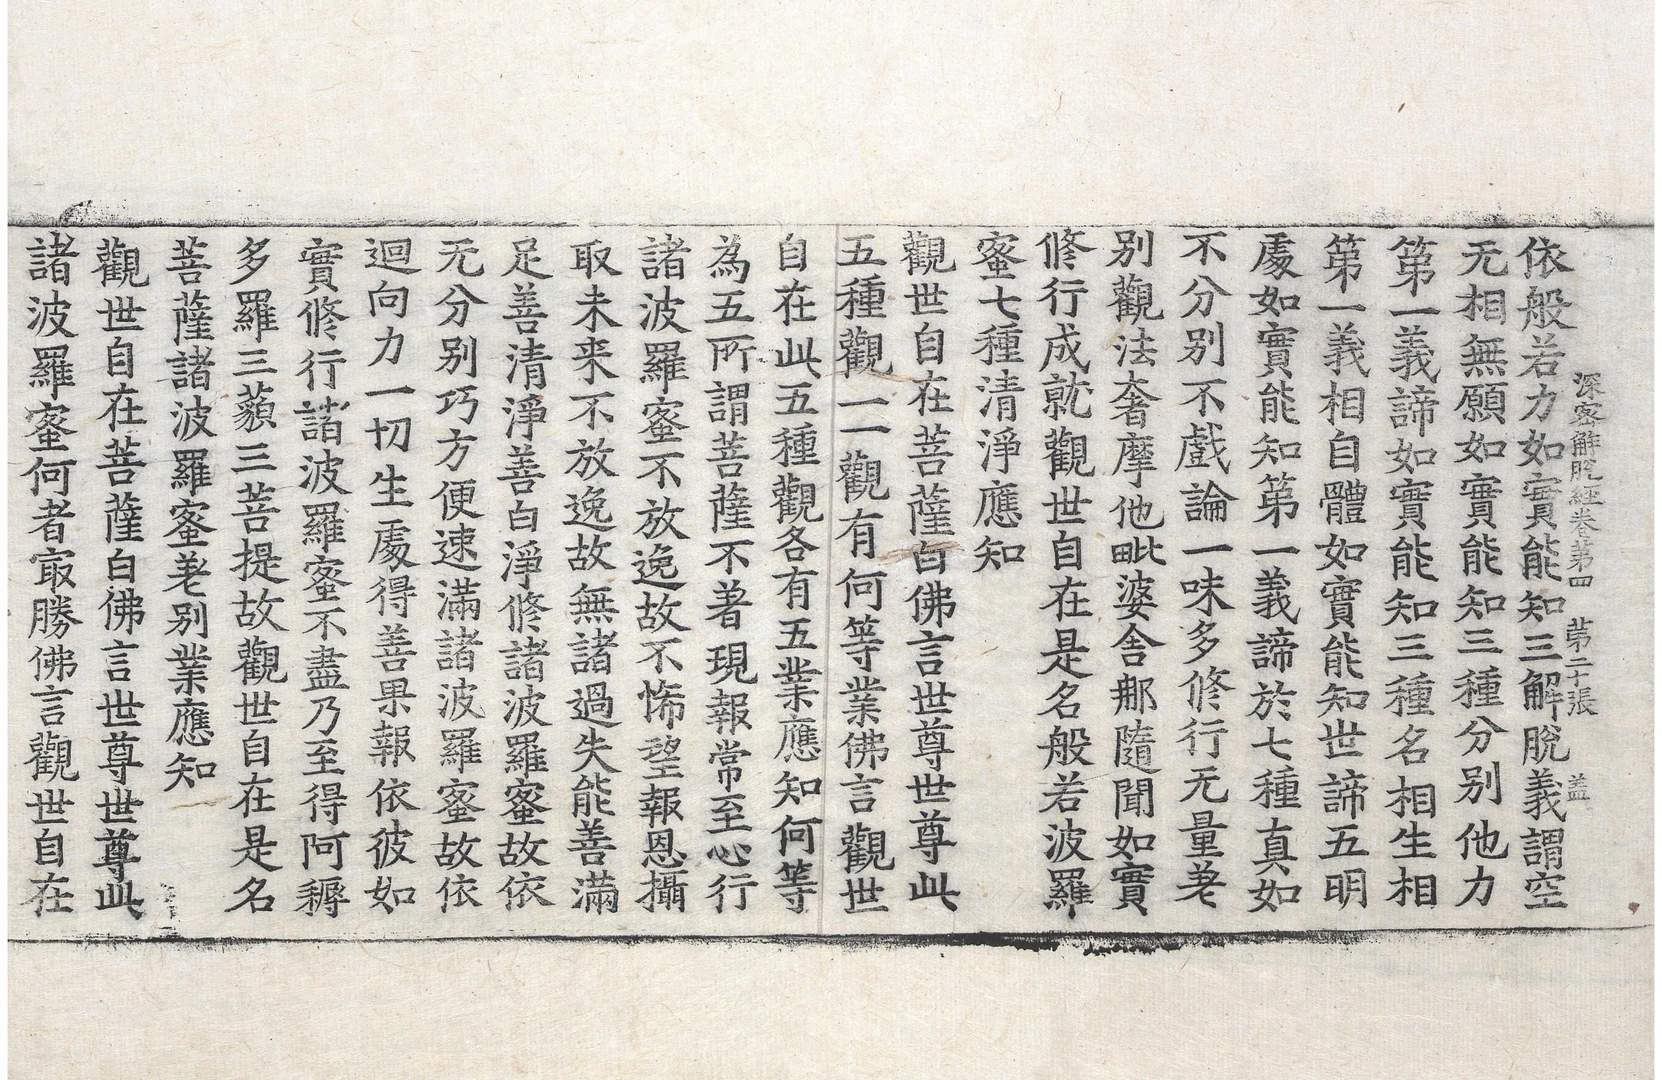 深密解脫經卷第四　苐二十張　盖
依般若力如實能知三解脫義謂空
无相無願如實能知三種分別他力
第一義諦如實能知三種名相生相
第一義相自體如實能知世諦五明
處如實能知第一義諦於七種真如
不分別不戲論一味多修行无量差
別觀法奢摩他毗婆舍那隨聞如實
修行成就觀世自在是名般若波羅
蜜七種清淨應知
觀世自在菩薩白佛言世尊世尊此
五種觀一一觀有何等業佛言觀世
自在此五種觀各有五業應知何等
為五所謂菩薩不著現報常至心行
諸波羅蜜不放逸故不悕望報恩攝
取未来不放逸故無諸過失能善滿
足善清淨善白淨修諸波羅蜜故依
无分别巧方便速滿諸波羅蜜故依
迴向力一切生處得善果報依彼如
實修行諸波羅蜜不盡乃至得阿耨
多羅三藐三菩提故觀世自在是名
菩薩諸波羅蜜差别業應知
觀世自在菩薩白佛言世尊世尊此
諸波羅蜜何者㝡勝佛言觀世自在